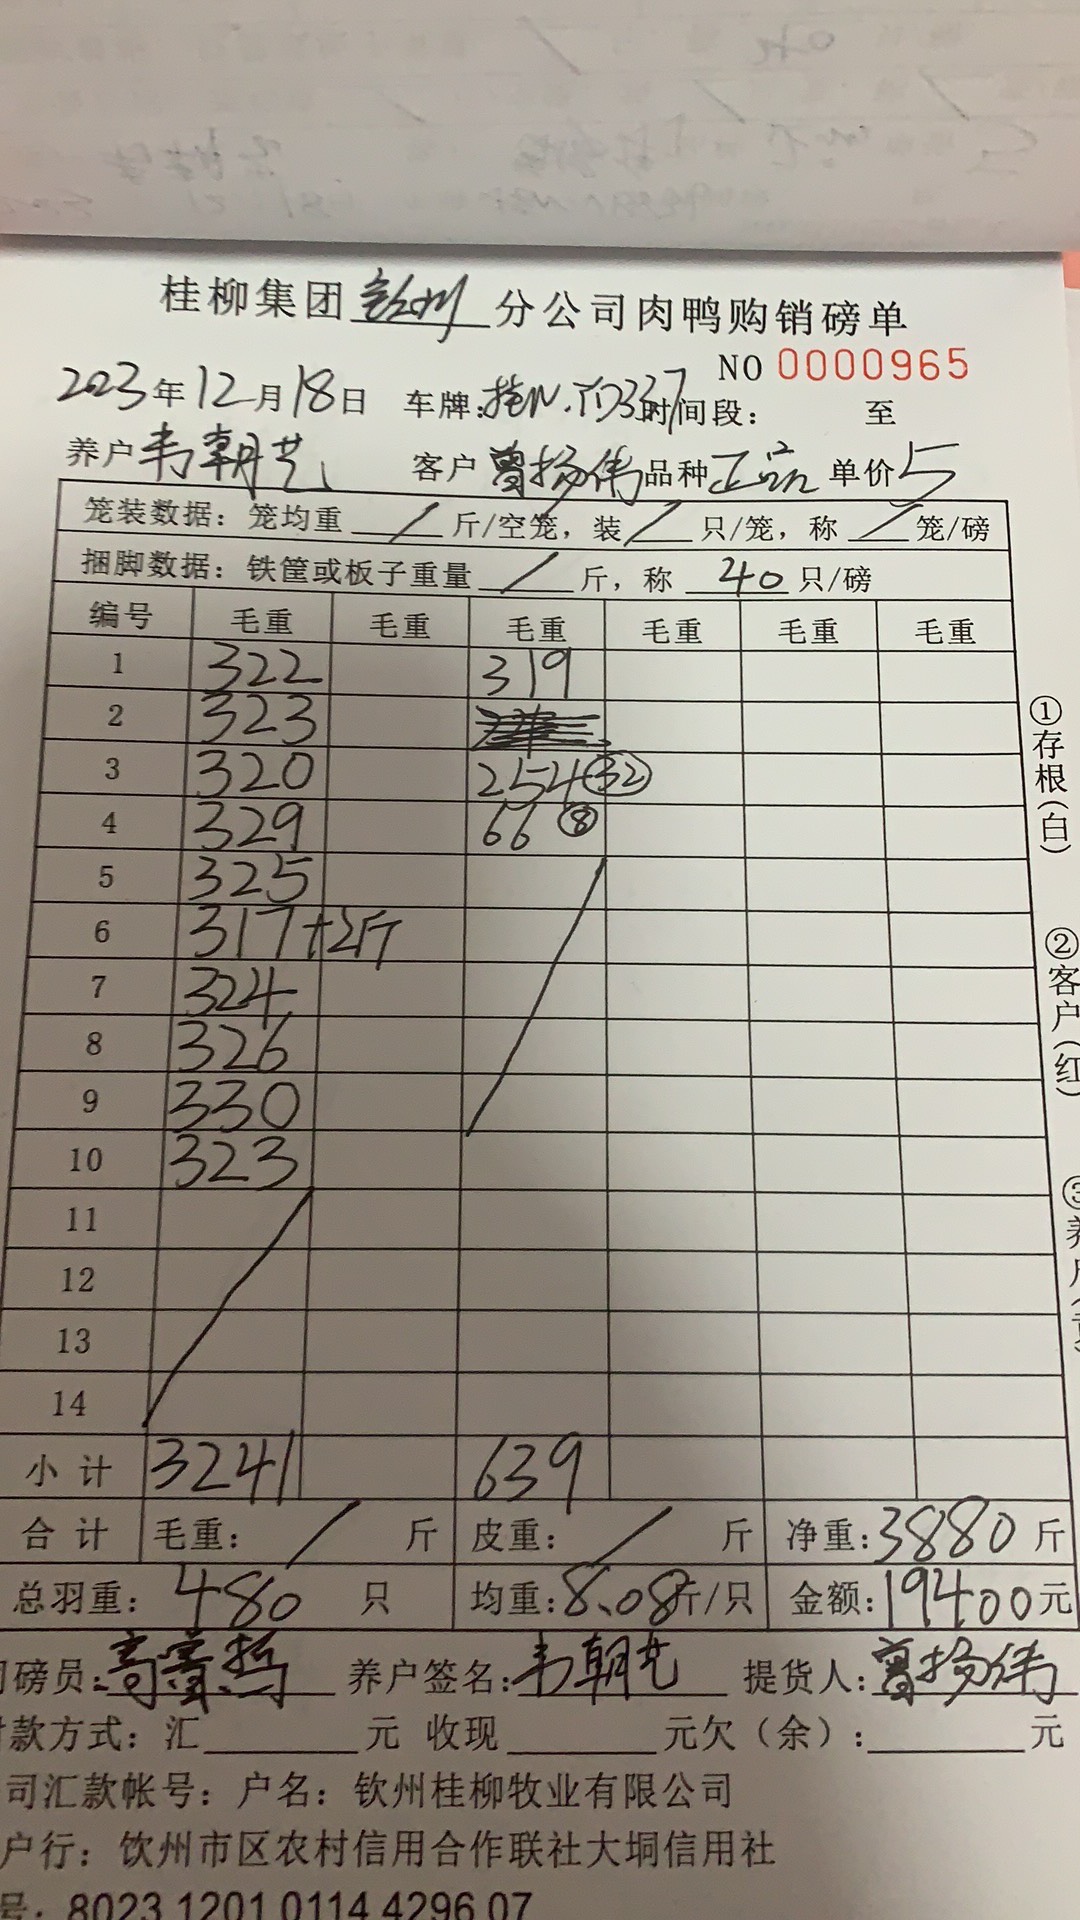 桂柳集团 钦州 分公司肉鸭购销磅单
NO 0000965
2023年12月18日 车牌:桂N. 时间段: 至
养户 韦朝艺 客户 曾扬伟 品种 正品 单价 5
笼装数据: 笼均重 / 斤/空笼, 装 / 只/笼, 称 / 笼/磅
捆脚数据: 铁筐或板子重量 / 斤, 称 40 只/磅
编号 毛重 毛重 毛重 毛重 毛重 毛重
1 322 319
2 323
3 320 254 (32)
4 329 66 (8)
5 325
6 317+2斤
7 324
8 326
9 330
10 323
11
12
13
14
小计 3241 639
合计 毛重: / 斤 皮重: / 斤 净重:3880斤
总羽重: 480 只 均重:8.08斤/只 金额:19400元
磅员: 养户签名:韦朝艺 提货人:曾扬伟
款方式: 汇 元 收现 元欠(余): 元
司汇款帐号: 户名: 钦州桂柳牧业有限公司
户行: 钦州市区农村信用合作联社大垌信用社
号: 8023 1201 0114 4296 07
①存根(白)
②客户(红)
③养